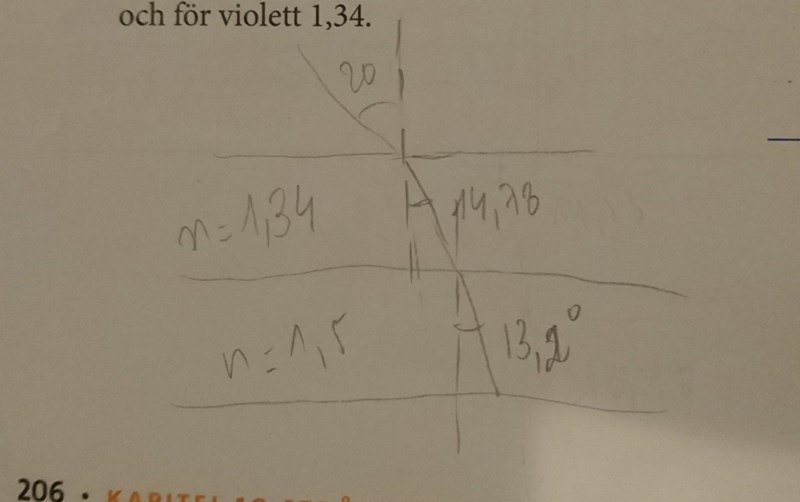 och för violett 1,34.
20
n=1,34
14,78
n=1,5
13,2°
206 • KAPITEL